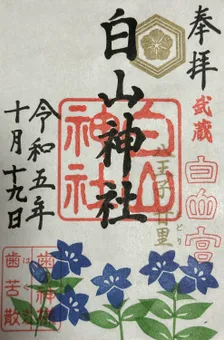 奉拝
武蔵
白山宮
八王子
白山神社
白山神社
令和五年
十月十九日
歯苦散